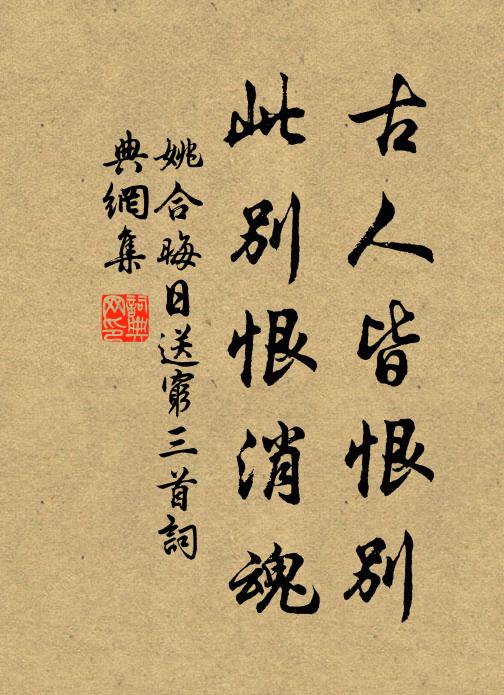 古人皆恨別
此別恨消魂
姚合晦日送窮三首詞
典網集
詞典網印